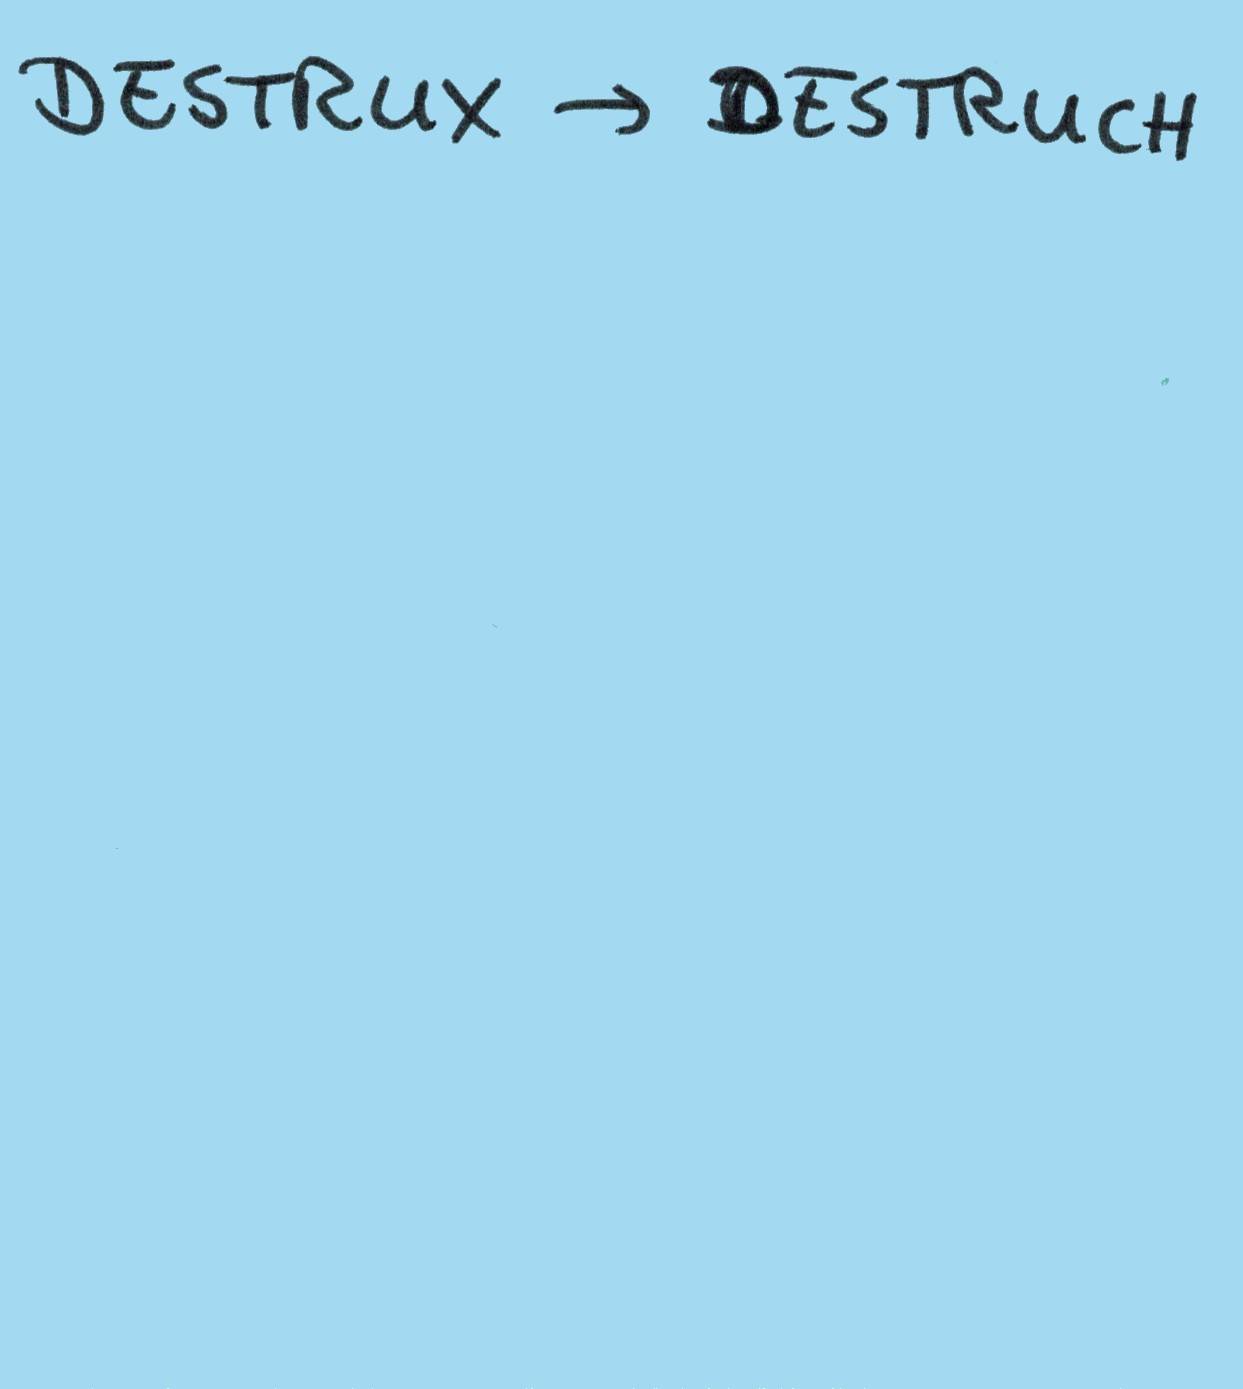 DESTRUX → DESTRUCH